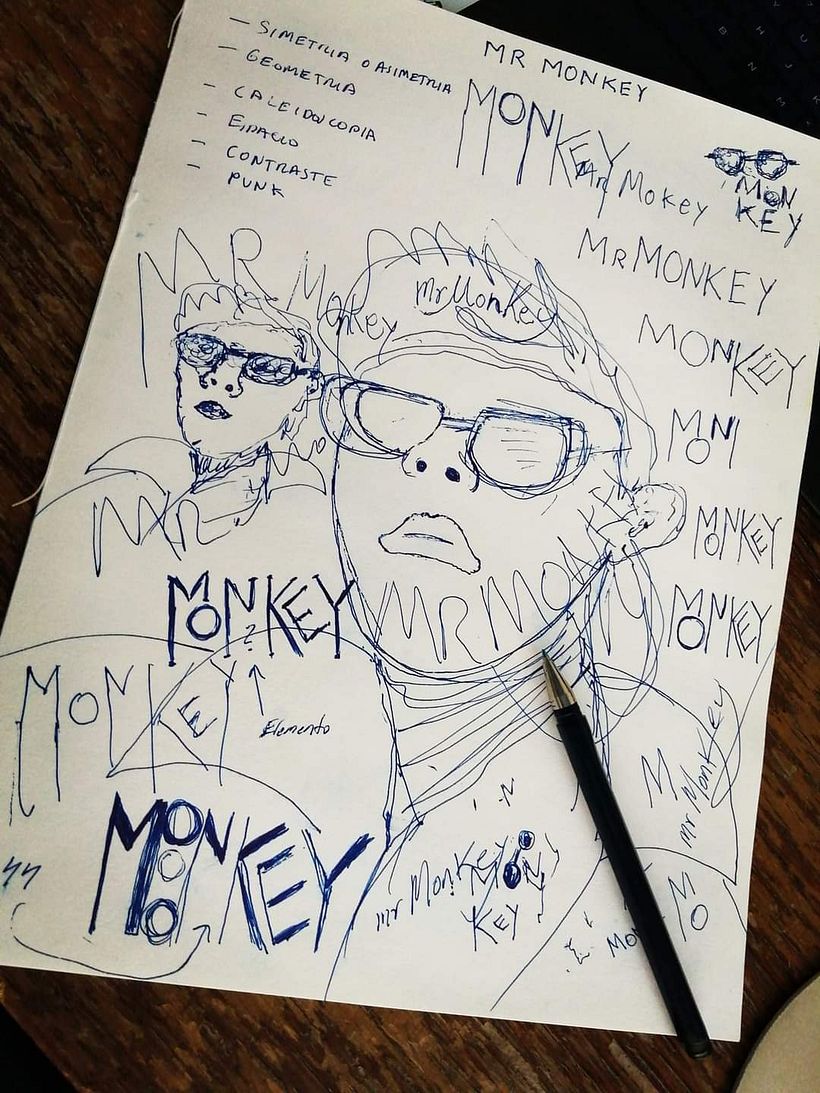 - SIMETRIA O ASIMETRIA
- GEOMETRIA
- CALEIDOSCOPIA
- ESPACIO
- CONTRASTE
- PUNK
MR MONKEY
MONKEY
Mr Mokey
MON
KEY
MR MONKEY
MONKEY
MR Monkey
mr Monkey
MON
MONKEY
MONKEY
MR
MR MONKEY
MONKEY
?
Elemento
MONKEY
MONKEY
mr Monkey
MON
KEY
M
mr Monkey
MO
MO